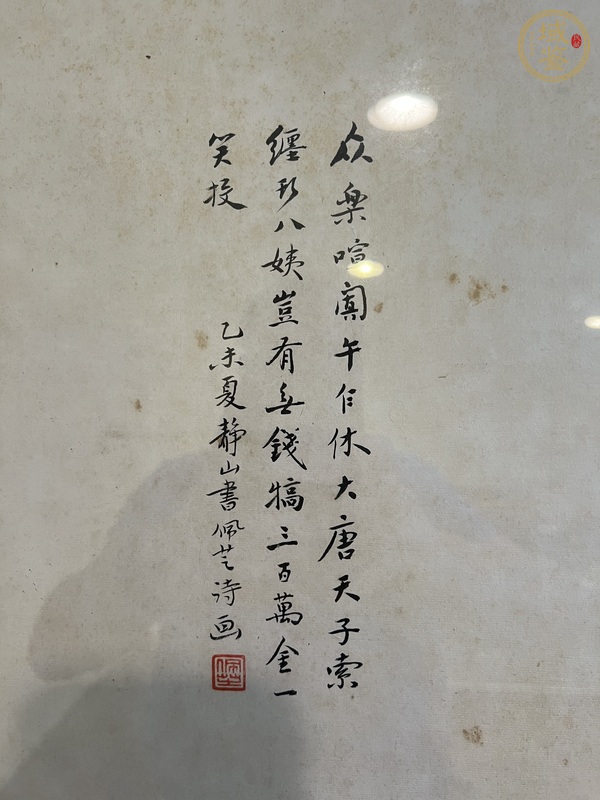 众樂喧闐午乍休大唐天子索
纏頭八姨豈有無錢犒三百萬金一
笑投
乙未夏靜山書佩芝詩画